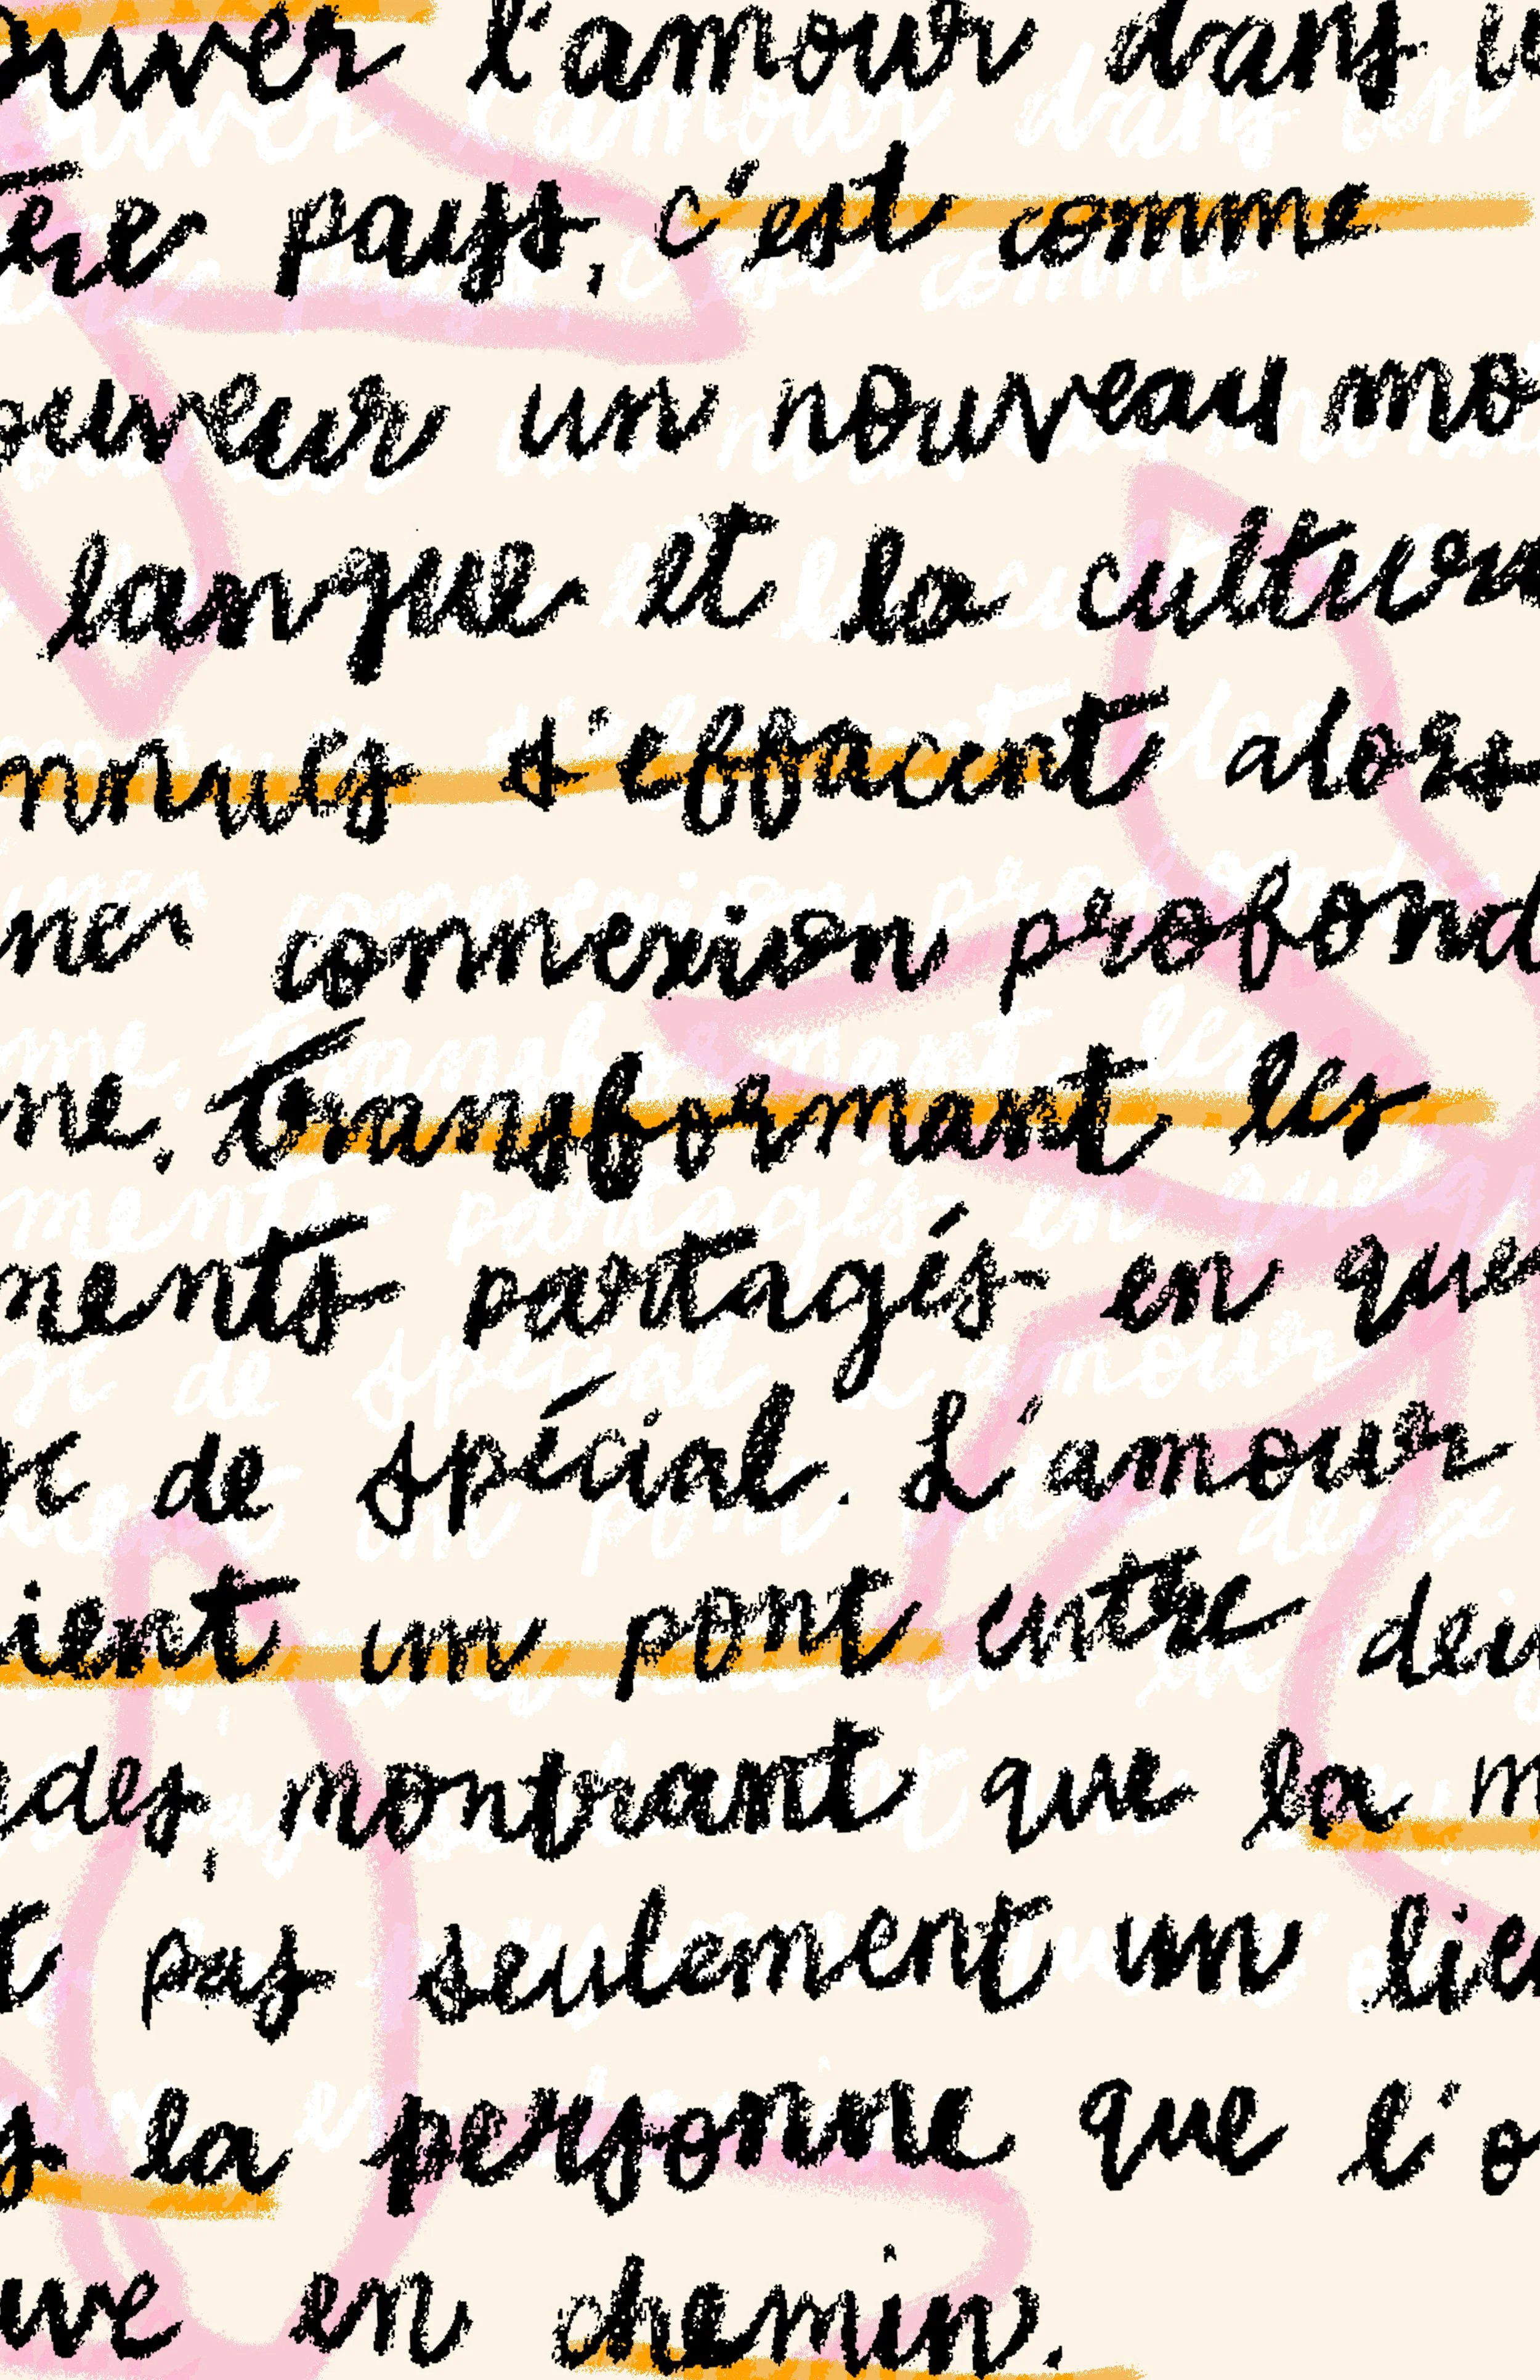 ouver l'amour dans u
ère pays, c'est comme
ouveur un nouveau mo
langue et la cultur
nnues s'effacent alors
ne connexion profond
ne, transformant les
ments partagés en que
se de spécial. L'amour
ient un pont entre deu
des, montrant que la m
t pas seulement un lie
s la personne que l'o
uve en chemin.